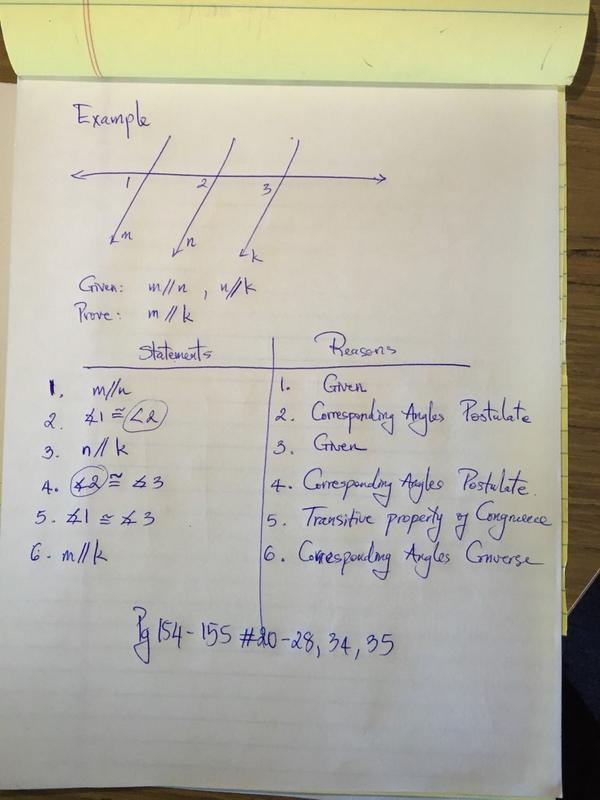 Example
1 2 3
m n k
Given: m//n , n//k
Prove: m//k
Statements Reasons
1. m//n 1. Given
2. ∡1 ≅ ∠2 2. Corresponding Angles Postulate
3. n//k 3. Given
4. ∡2 ≅ ∡3 4. Corresponding Angles Postulate.
5. ∡1 ≅ ∡3 5. Transitive property of Congruence
6. m//k 6. Corresponding Angles Converse
Pg 154-155 #20-28, 34, 35